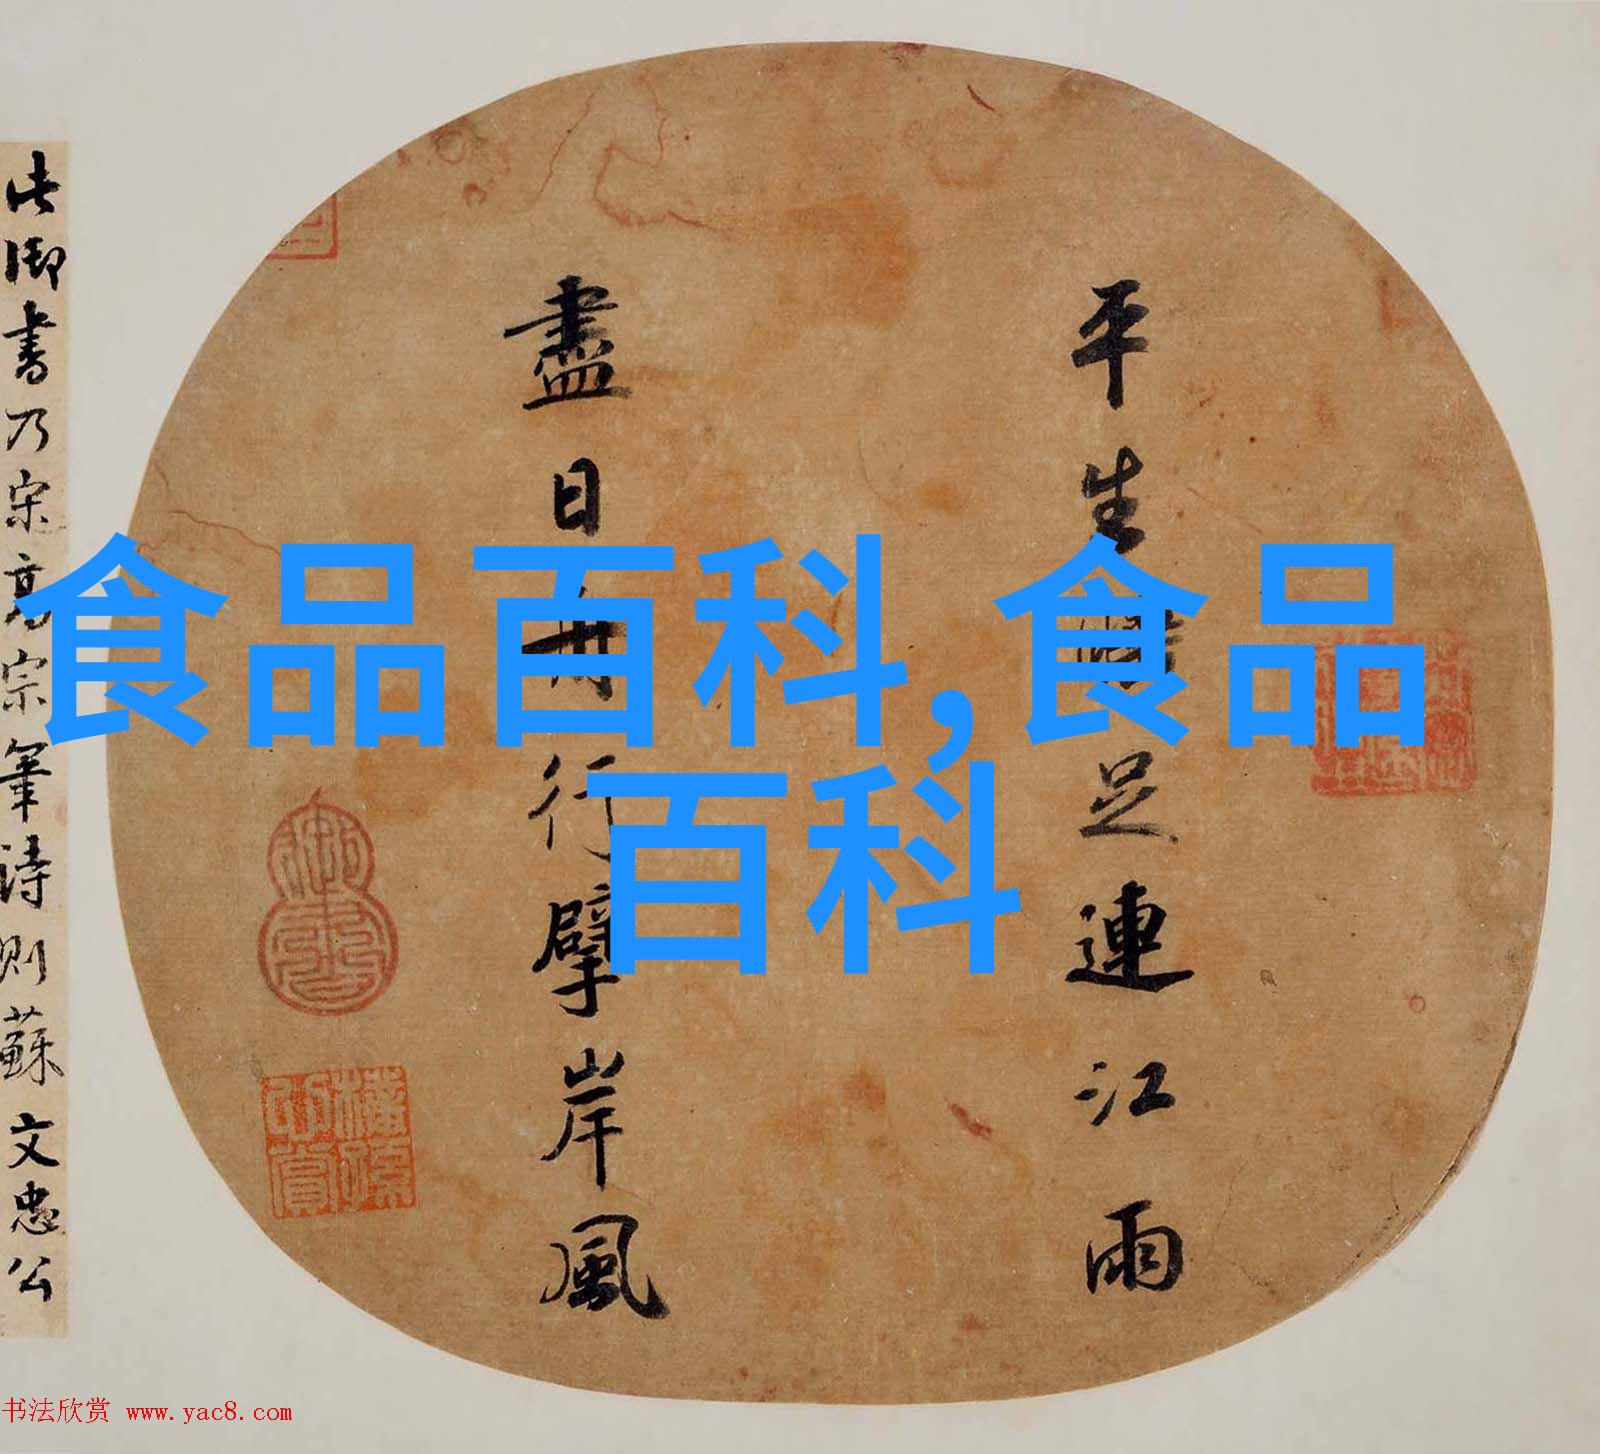 食品百科,食品
百科
平生足連江雨
盡日舟行擘岸風
此御書乃宋高宗筆詩則蘇文忠公
书法欣赏 www.yac8.com